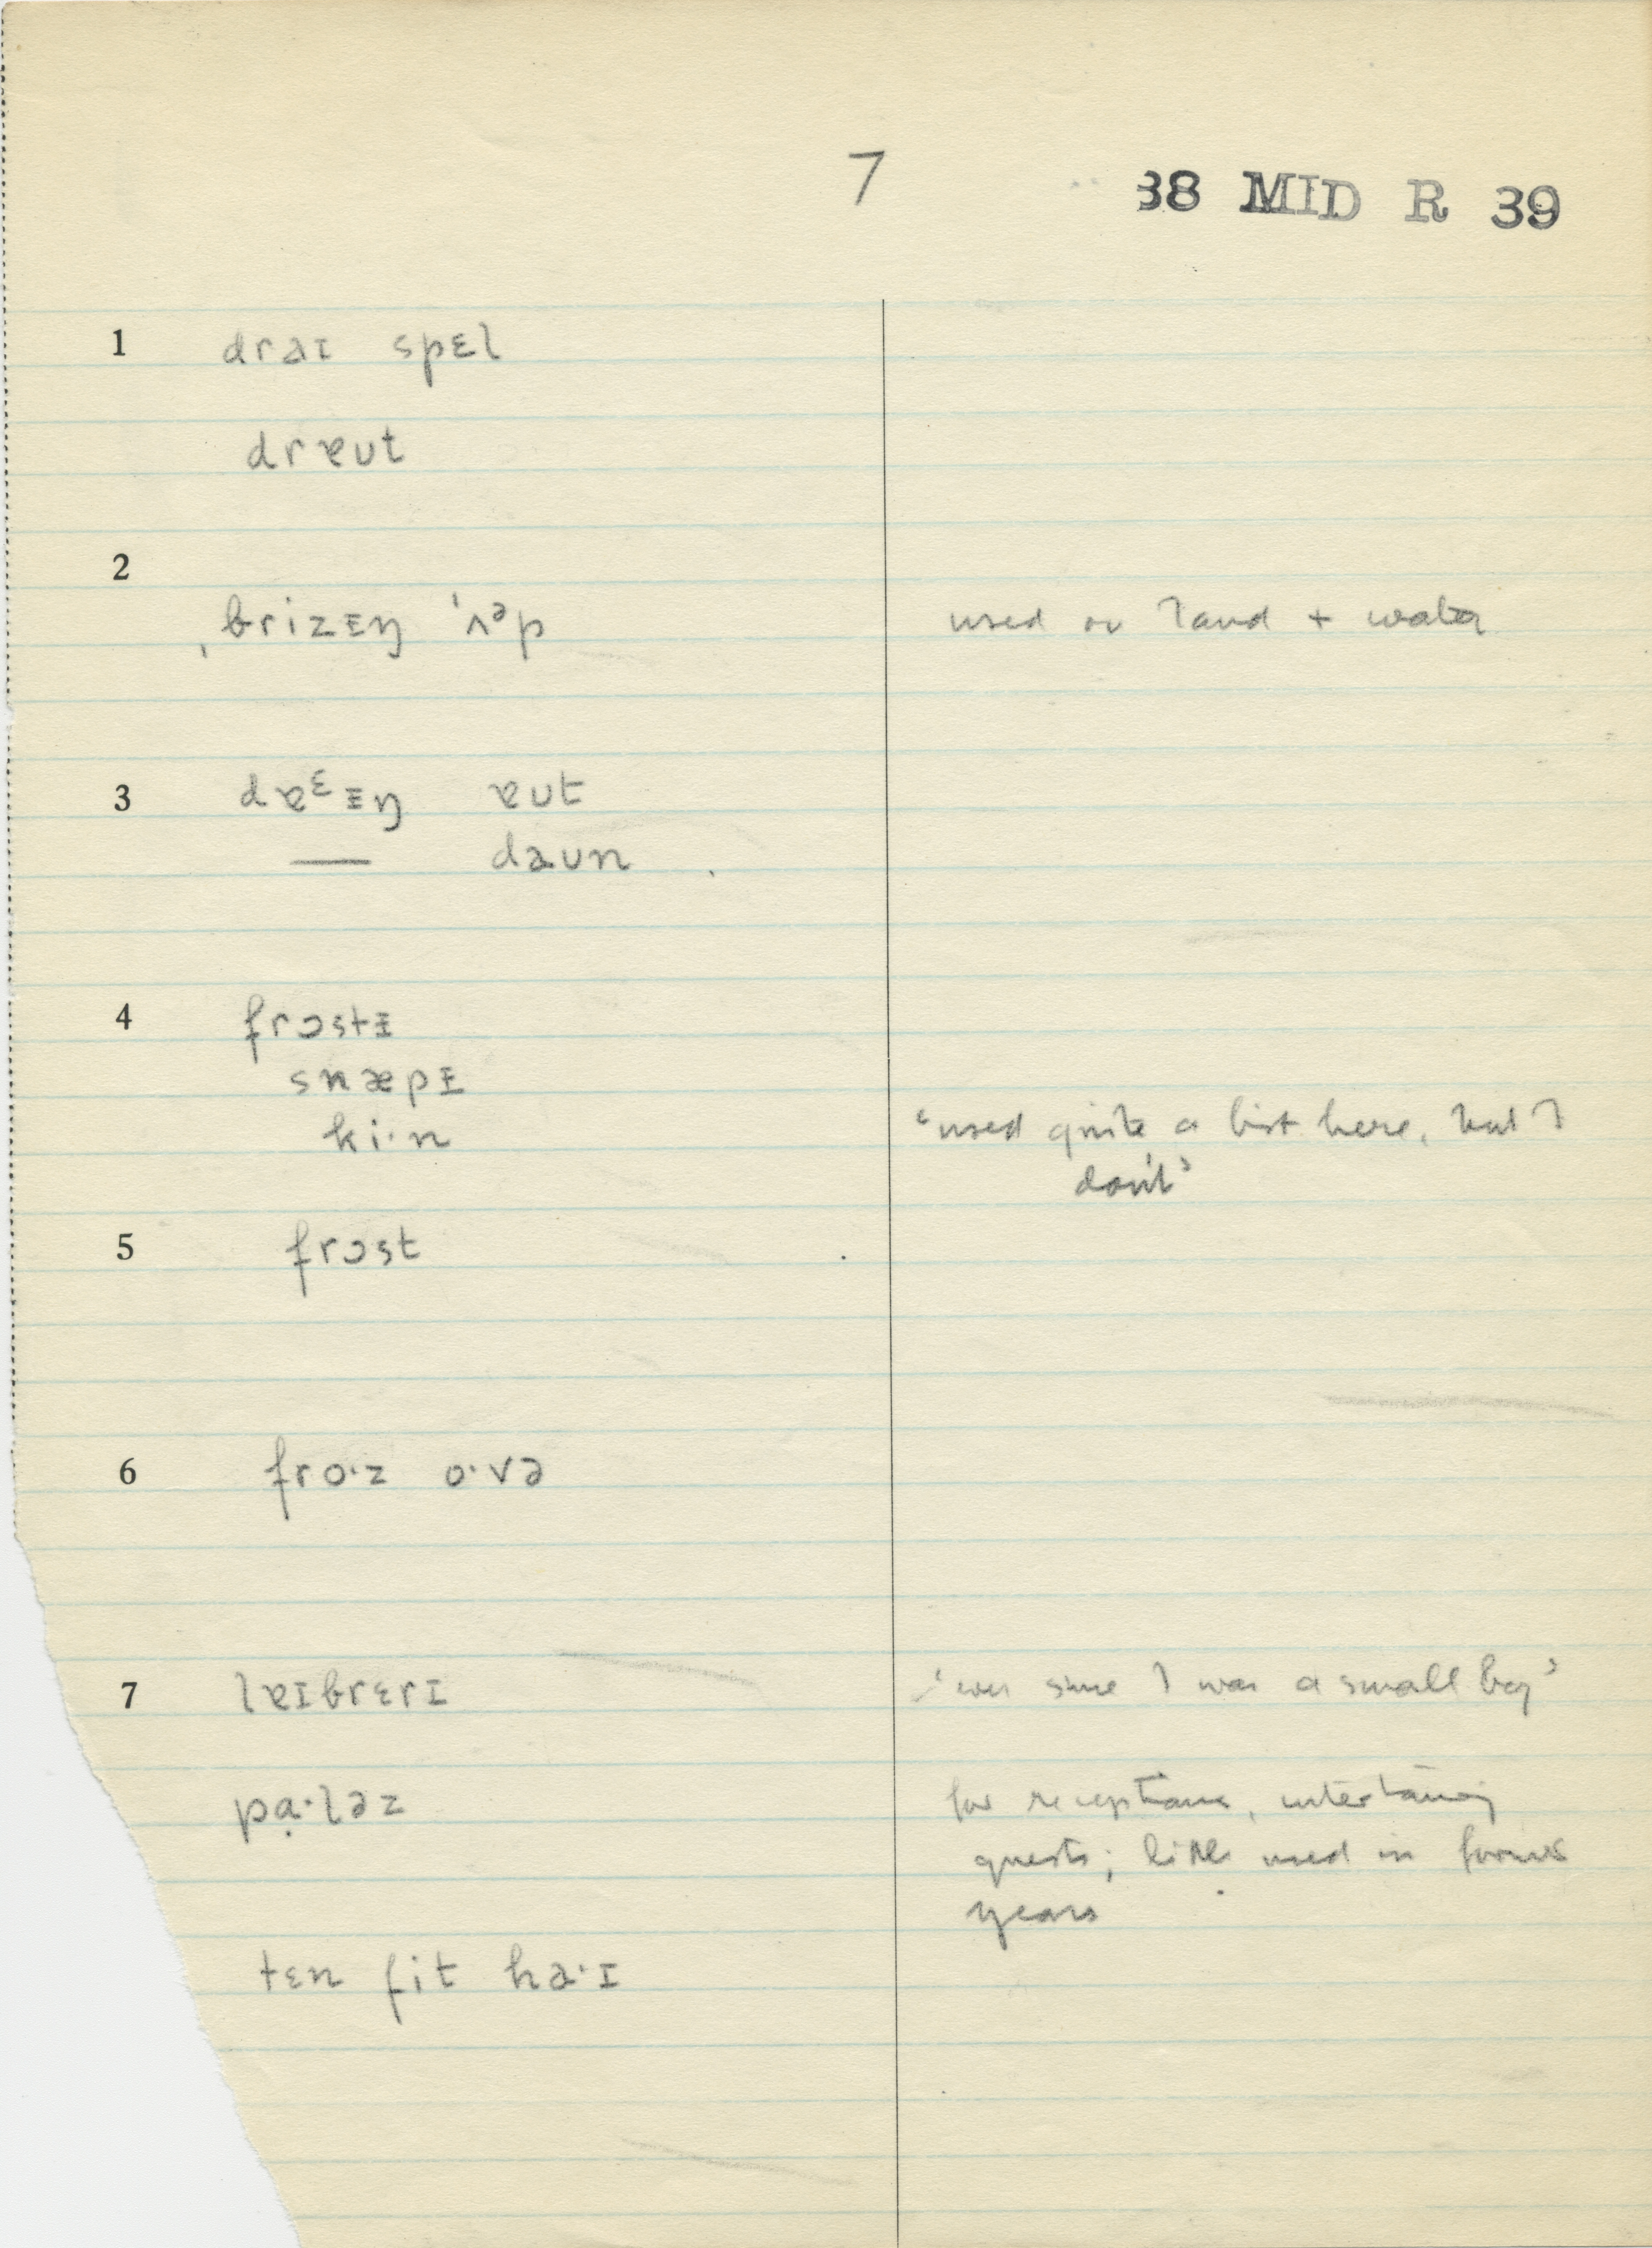 7
38 MID R 39
1 draɪ spɛl
drɐʊt
2
ˌbrizɪŋ ˈʌᵊp used on land + water
3 dɐᵋɪŋ ɐʊt
— daʊn
4 frɔstɪ
snæpɪ
ki·n 'used quite a bit here, but I
don't'
5 frɔst
6 fro·z o·və
7 lɐɪbrɛrɪ 'ever since I was a small boy'
pɑ̣·ləz for receptions, entertaining
guests; little used in former
years
tɛn fit ha·ɪ